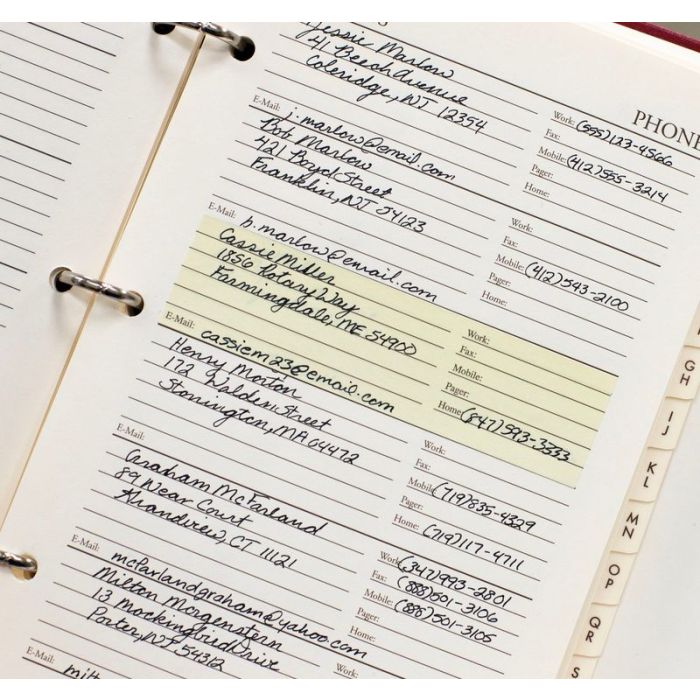 PHONE
Jessie Marlow
41 Beech Avenue
Coleridge, NJ 12354
E-Mail: j.marlow@email.com
Work: (555)123-4566
Fax:
Mobile: (412)555-3214
Pager:
Home:
Bob Marlow
421 Boyd Street
Franklin, NJ J4123
E-Mail: b.marlow@email.com
Work:
Fax:
Mobile: (412)543-2100
Pager:
Home:
Cassie Miller
1856 Rotary Way
Farmingdale, ME 54900
E-Mail: cassiem123@email.com
Work:
Fax:
Mobile:
Pager:
Home: (847)593-3333
Henry Morton
172 Walden Street
Stonington, MA 04472
E-Mail:
Work:
Fax:
Mobile: (719)835-4329
Pager:
Home: (719)117-4711
Graham McFarland
89 Wear Court
CT 11121
E-Mail: mcfarlandgraham@yahoo.com
Work: (347)993-2801
Fax: (888)501-3106
Mobile: (888)501-3105
Pager:
Home:
Milton Morgenstern
13 Mockingbird Drive
Porter, NJ 54312
E-Mail:
Work:
GH
IJ
KL
MN
OP
QR
S